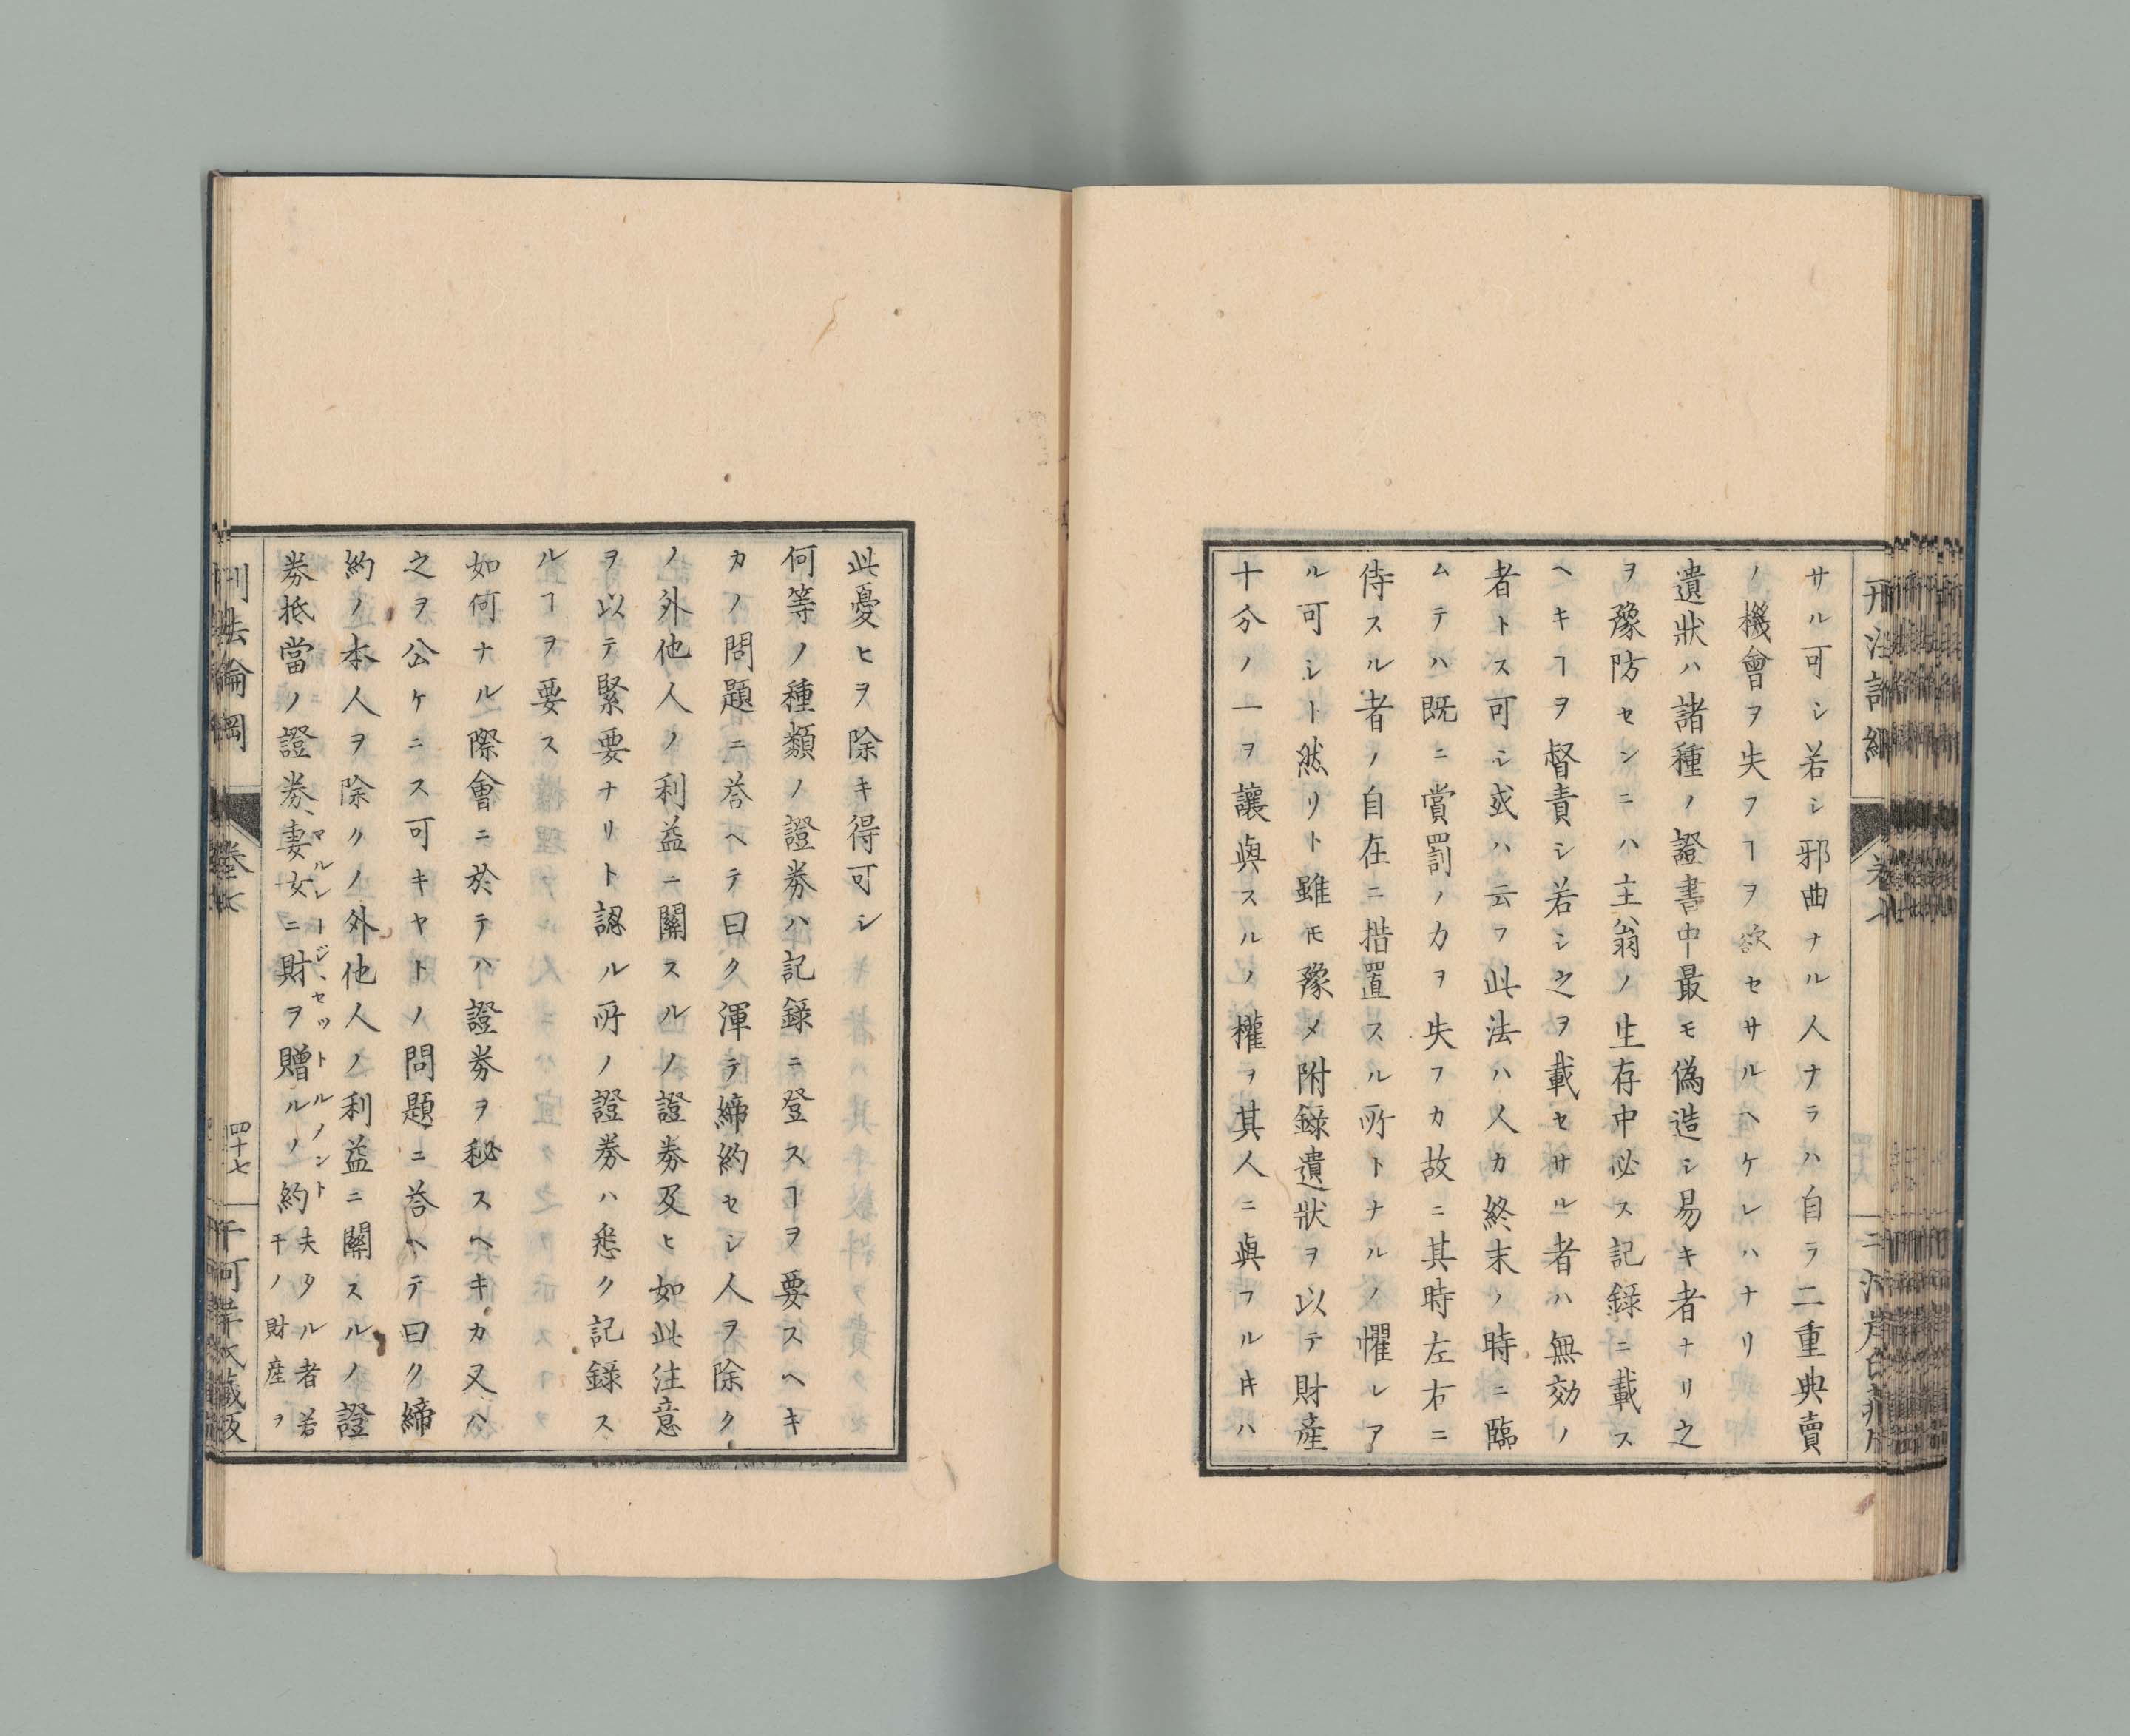 サル可シ若シ邪曲ナル人ナラハ自ラ二重典賣
ノ機會ヲ失フヿヲ欲セサルヘケレハナリ
遺狀ハ諸種ノ證書中最モ偽造シ易キ者ナリ之
ヲ豫防センニハ主翁ノ生存中必ス記錄ニ載ス
ヘキヿヲ督責シ若シ之ヲ載セサル者ハ無効ノ
者トス可シ或ハ云フ此法ハ人カ終末ノ時ニ臨
ムテハ既ニ賞罰ノカヲ失フカ故ニ其時左右ニ
侍スル者ノ自在ニ措置スル所トナルノ懼レア
ル可シト然リト雖モ豫メ附錄遺狀ヲ以テ財產
十分ノ一ヲ讓與スルノ權ヲ其人ニ與フルキハ
此憂ヒヲ除キ得可シ
何等ノ種類ノ證券ハ記錄ニ登スヿヲ要スヘキ
カノ問題ニ荅ヘテ曰ク渾テ締約セシ人ヲ除ク
ノ外他人ノ利益ニ關スルノ證券及ヒ如此注意
ヲ以テ緊要ナリト認ル所ノ證券ハ悉ク記錄ス
ルヿヲ要ス
如何ナル際會ニ於テハ證券ヲ秘スヘキカ又ハ
之ヲ公ケニス可キヤトノ問題ニ荅ヘテ曰ク締
約ノ本人ヲ除クノ外他人ノ利益ニ關スルノ證
券抵當ノ證券、妻女ニ財ヲ贈ルノ約
マルレージ、セットルメント
夫タル者若
干ノ財産ヲ
刑法論綱
卷七
四十七